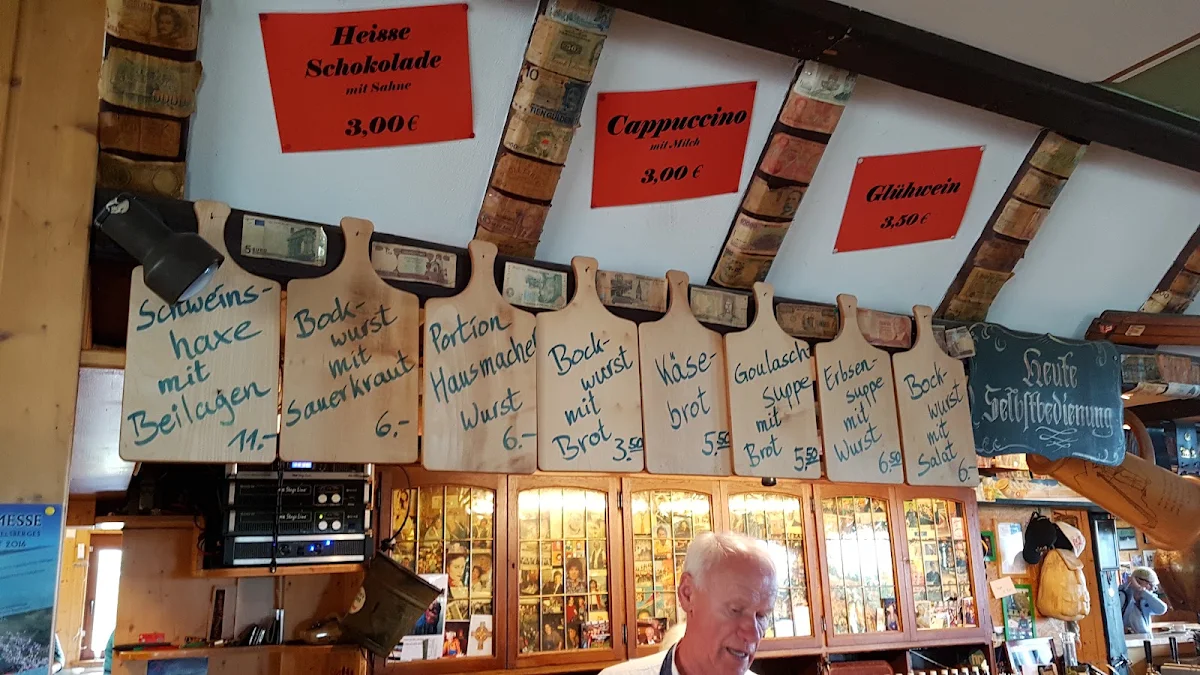 Heisse
Schokolade
mit Sahne
3,00€
Cappuccino
mit Milch
3,00 €
Glühwein
3,50 €
Schweins-
haxe
mit
Beilagen
11.-
Bock-
wurst
mit
Sauerkraut
6.-
Portion
Hausmacher
Wurst
6.-
Bock-
wurst
mit
Brot 3.50
Käse-
brot
5,50
Goulasch-
suppe
mit
Brot 5,50
Erbsen-
suppe
mit
Wurst
6,50
Bock-
wurst
mit
Salat
6.-
Heute
Selbstbedienung
5 EURO
10
MESSE
2016